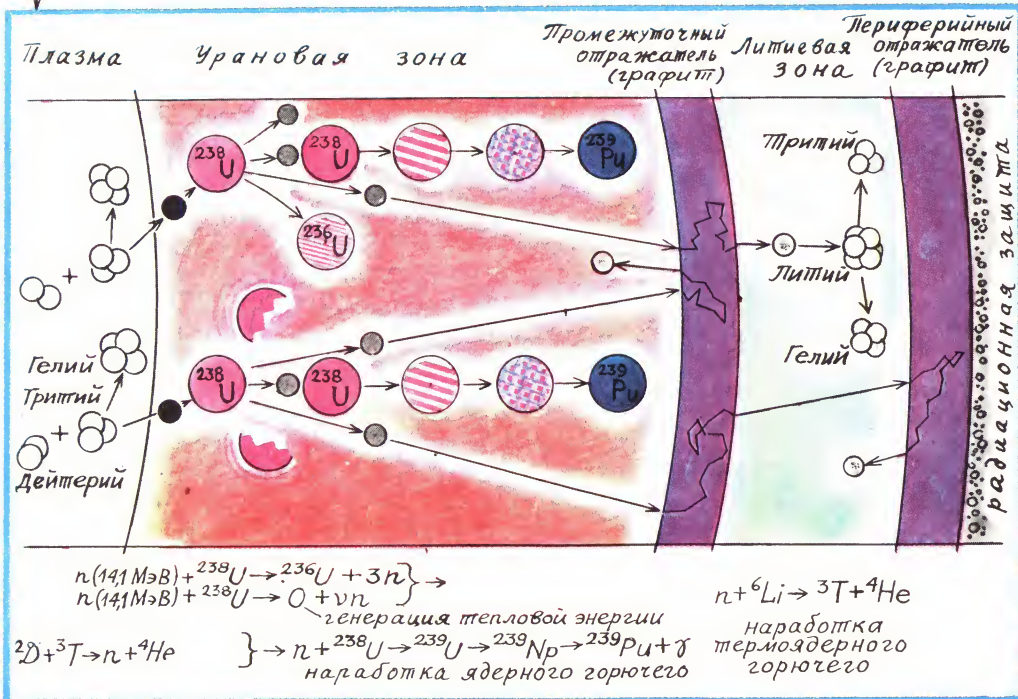 Плазма
Урановая зона
Промежуточный
отражатель
(графит)
Литиевая
зона
Периферийный
отражатель
(графит)
238U
238U
239Pu
236U
Тритий
Литий
Гелий
Гелий
Тритий
Дейтерий
238U
238U
239Pu
радиационная защита
n(14,1МэВ)+238U→236U+3n}→
n(14,1МэВ)+238U→O+νn
генерация тепловой энергии
2D+3T→n+4He }→n+238U→239U→239Np→239Pu+γ
наработка ядерного горючего
n+6Li→3T+4He
наработка
термоядерного
горючего